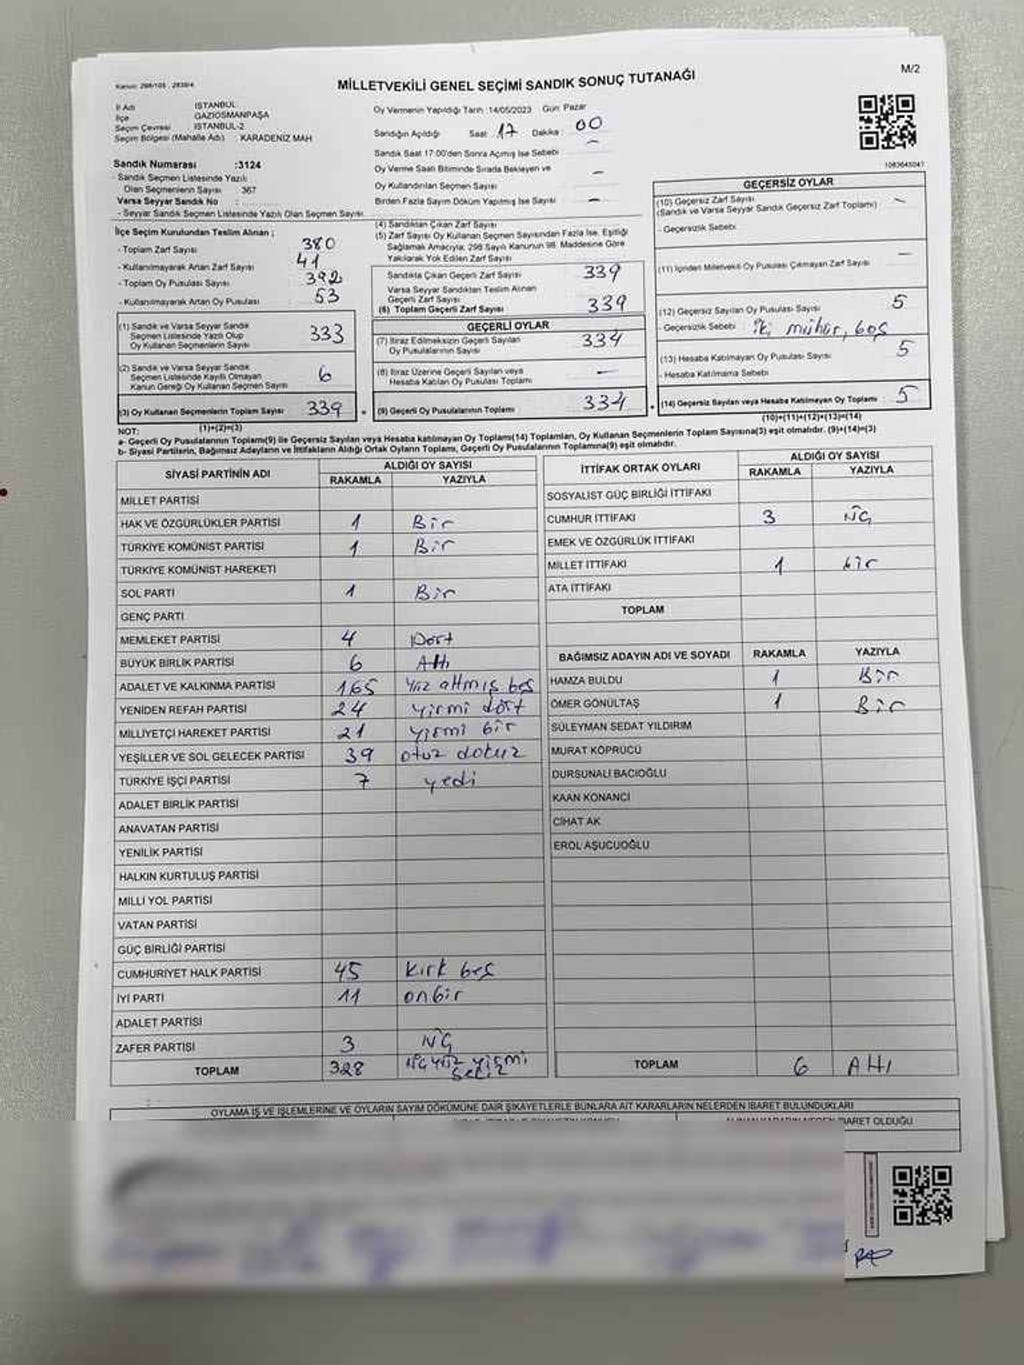 Kanun: 298/105 , 2839/4
MİLLETVEKİLİ GENEL SEÇİMİ SANDIK SONUÇ TUTANAĞI
M/2
İl Adı İSTANBUL
İlçe GAZİOSMANPAŞA
Seçim Çevresi İSTANBUL-2
Seçim Bölgesi (Mahalle Adı) : KARADENİZ MAH
Sandık Numarası :3124
Sandık Seçmen Listesinde Yazılı
Olan Seçmenlerin Sayısı : 367
Varsa Seyyar Sandık No
- Seyyar Sandık Seçmen Listesinde Yazılı Olan Seçmen Sayısı
Oy Vermenin Yapıldığı Tarih :14/05/2023 Gün: Pazar
Sandığın Açıldığı Saat: 17 Dakika: 00
Sandık Saat 17:00'den Sonra Açılmış İse Sebebi —
Oy Verme Saati Bitiminde Sırada Bekleyen ve
Oy Kullandırılan Seçmen Sayısı —
Birden Fazla Sayım Döküm Yapılmış İse Sayısı —
1083645047
İlçe Seçim Kurulundan Teslim Alınan ;
- Toplam Zarf Sayısı 380
- Kullanılmayarak Artan Zarf Sayısı 41
- Toplam Oy Pusulası Sayısı 392
- Kullanılmayarak Artan Oy Pusulası 53
(1) Sandık ve Varsa Seyyar Sandık
Seçmen Listesinde Yazılı Olup
Oy Kullanan Seçmenlerin Sayısı 333
(2) Sandık ve Varsa Seyyar Sandık
Seçmen Listesinde Kayıtlı Olmayan
Kanun Gereği Oy Kullanan Seçmen Sayısı 6
(3) Oy Kullanan Seçmenlerin Toplam Sayısı 339
(1)+(2)=(3)
(4) Sandıktan Çıkan Zarf Sayısı
(5) Zarf Sayısı Oy Kullanan Seçmen Sayısından Fazla İse, Eşitliği
Sağlamak Amacıyla, 298 Sayılı Kanunun 98. Maddesine Göre
Yakılarak Yok Edilen Zarf Sayısı
Sandıkta Çıkan Geçerli Zarf Sayısı 339
Varsa Seyyar Sandıktan Teslim Alınan
Geçerli Zarf Sayısı
(6) Toplam Geçerli Zarf Sayısı 339
GEÇERLİ OYLAR
(7) İtiraz Edilmeksizin Geçerli Sayılan
Oy Pusulalarının Sayısı 334
(8) İtiraz Üzerine Geçerli Sayılan veya
Hesaba Katılan Oy Pusulası Toplamı —
(9) Geçerli Oy Pusulalarının Toplamı 334
GEÇERSİZ OYLAR
(10) Geçersiz Zarf Sayısı
(Sandık ve Varsa Seyyar Sandık Geçersiz Zarf Toplamı) —
- Geçersizlik Sebebi
(11) İçinden Milletvekili Oy Pusulası Çıkmayan Zarf Sayısı —
(12) Geçersiz Sayılan Oy Pusulası Sayısı 5
- Geçersizlik Sebebi iki mühür, boş
(13) Hesaba Katılmayan Oy Pusulası Sayısı 5
- Hesaba Katılmama Sebebi
(14) Geçersiz Sayılan veya Hesaba Katılmayan Oy Toplamı 5
(10)+(11)+(12)+(13)=(14)
NOT:
a- Geçerli Oy Pusulalarının Toplamı(9) ile Geçersiz Sayılan veya Hesaba katılmayan Oy Toplamı(14) Toplamları, Oy Kullanan Seçmenlerin Toplam Sayısına(3) eşit olmalıdır. (9)+(14)=(3)
b- Siyasi Partilerin, Bağımsız Adayların ve İttifakların Aldığı Ortak Oyların Toplamı, Geçerli Oy Pusulalarının Toplamına(9) eşit olmalıdır.
SİYASİ PARTİNİN ADI ALDIĞI OY SAYISI
RAKAMLA YAZIYLA
MİLLET PARTİSİ
HAK VE ÖZGÜRLÜKLER PARTİSİ 1 Bir
TÜRKİYE KOMÜNİST PARTİSİ 1 Bir
TÜRKİYE KOMÜNİST HAREKETİ
SOL PARTİ 1 Bir
GENÇ PARTİ
MEMLEKET PARTİSİ 4 Dört
BÜYÜK BİRLİK PARTİSİ 6 Altı
ADALET VE KALKINMA PARTİSİ 165 Yüz altmış beş
YENİDEN REFAH PARTİSİ 24 yirmi dört
MİLLİYETÇİ HAREKET PARTİSİ 21 yirmi bir
YEŞİLLER VE SOL GELECEK PARTİSİ 39 otuz dokuz
TÜRKİYE İŞÇİ PARTİSİ 7 yedi
ADALET BİRLİK PARTİSİ
ANAVATAN PARTİSİ
YENİLİK PARTİSİ
HALKIN KURTULUŞ PARTİSİ
MİLLİ YOL PARTİSİ
VATAN PARTİSİ
GÜÇ BİRLİĞİ PARTİSİ
CUMHURİYET HALK PARTİSİ 45 Kırk beş
İYİ PARTİ 11 onbir
ADALET PARTİSİ
ZAFER PARTİSİ 3 Üç
TOPLAM 328 üç yüz yirmi sekiz
İTTİFAK ORTAK OYLARI ALDIĞI OY SAYISI
RAKAMLA YAZIYLA
SOSYALİST GÜÇ BİRLİĞİ İTTİFAKI
CUMHUR İTTİFAKI 3 Üç
EMEK VE ÖZGÜRLÜK İTTİFAKI
MİLLET İTTİFAKI 1 bir
ATA İTTİFAKI
TOPLAM
BAĞIMSIZ ADAYIN ADI VE SOYADI RAKAMLA YAZIYLA
HAMZA BULDU 1 Bir
ÖMER GÖNÜLTAŞ 1 Bir
SÜLEYMAN SEDAT YILDIRIM
MURAT KÖPRÜCÜ
DURSUNALİ BACIOĞLU
KAAN KONANCI
CİHAT AK
EROL AŞUCUOĞLU
TOPLAM 6 Altı
OYLAMA İŞ VE İŞLEMLERİNE VE OYLARIN SAYIM DÖKÜMÜNE DAİR ŞİKAYETLERLE BUNLARA AİT KARARLARIN NELERDEN İBARET BULUNDUKLARI
İBARET OLDUĞU